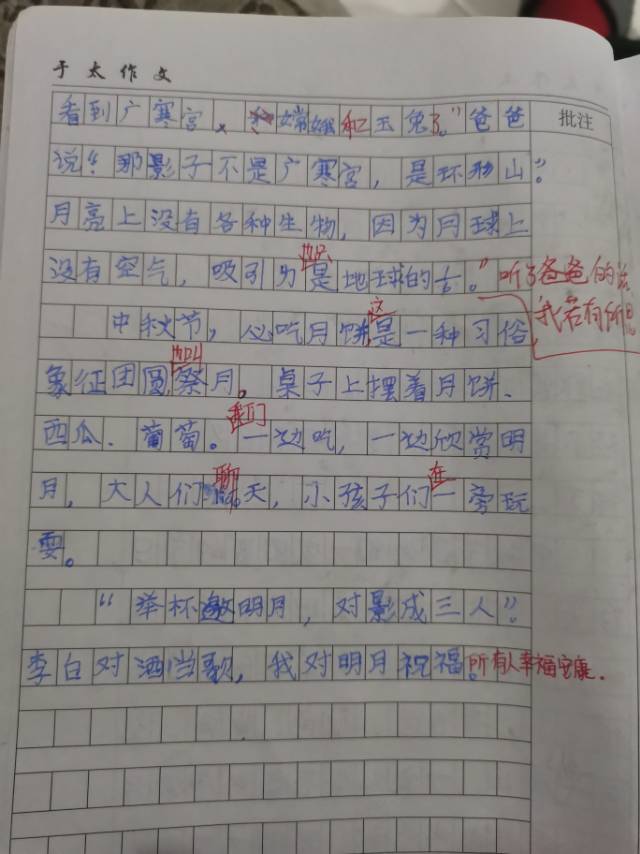 于太作文
看到广寒宫、嫦娥和玉兔了。”爸爸
批注
说“那影子不是广寒宫，是环形山”。
月亮上没有各种生物，因为月球上
没有空气，吸引力是地球的 。”听了爸爸的
我若有所
中秋节，心吃月饼，这是一种习俗，
象征团圆 祭月。桌子上摆着月饼、
西瓜、葡萄。我们一边吃，一边欣赏明
月，大人们聊天，小孩子们在一旁玩
耍。
“举杯邀明月，对影成三人”。
李白对酒当歌，我对明月祝福。所有人幸福安康．